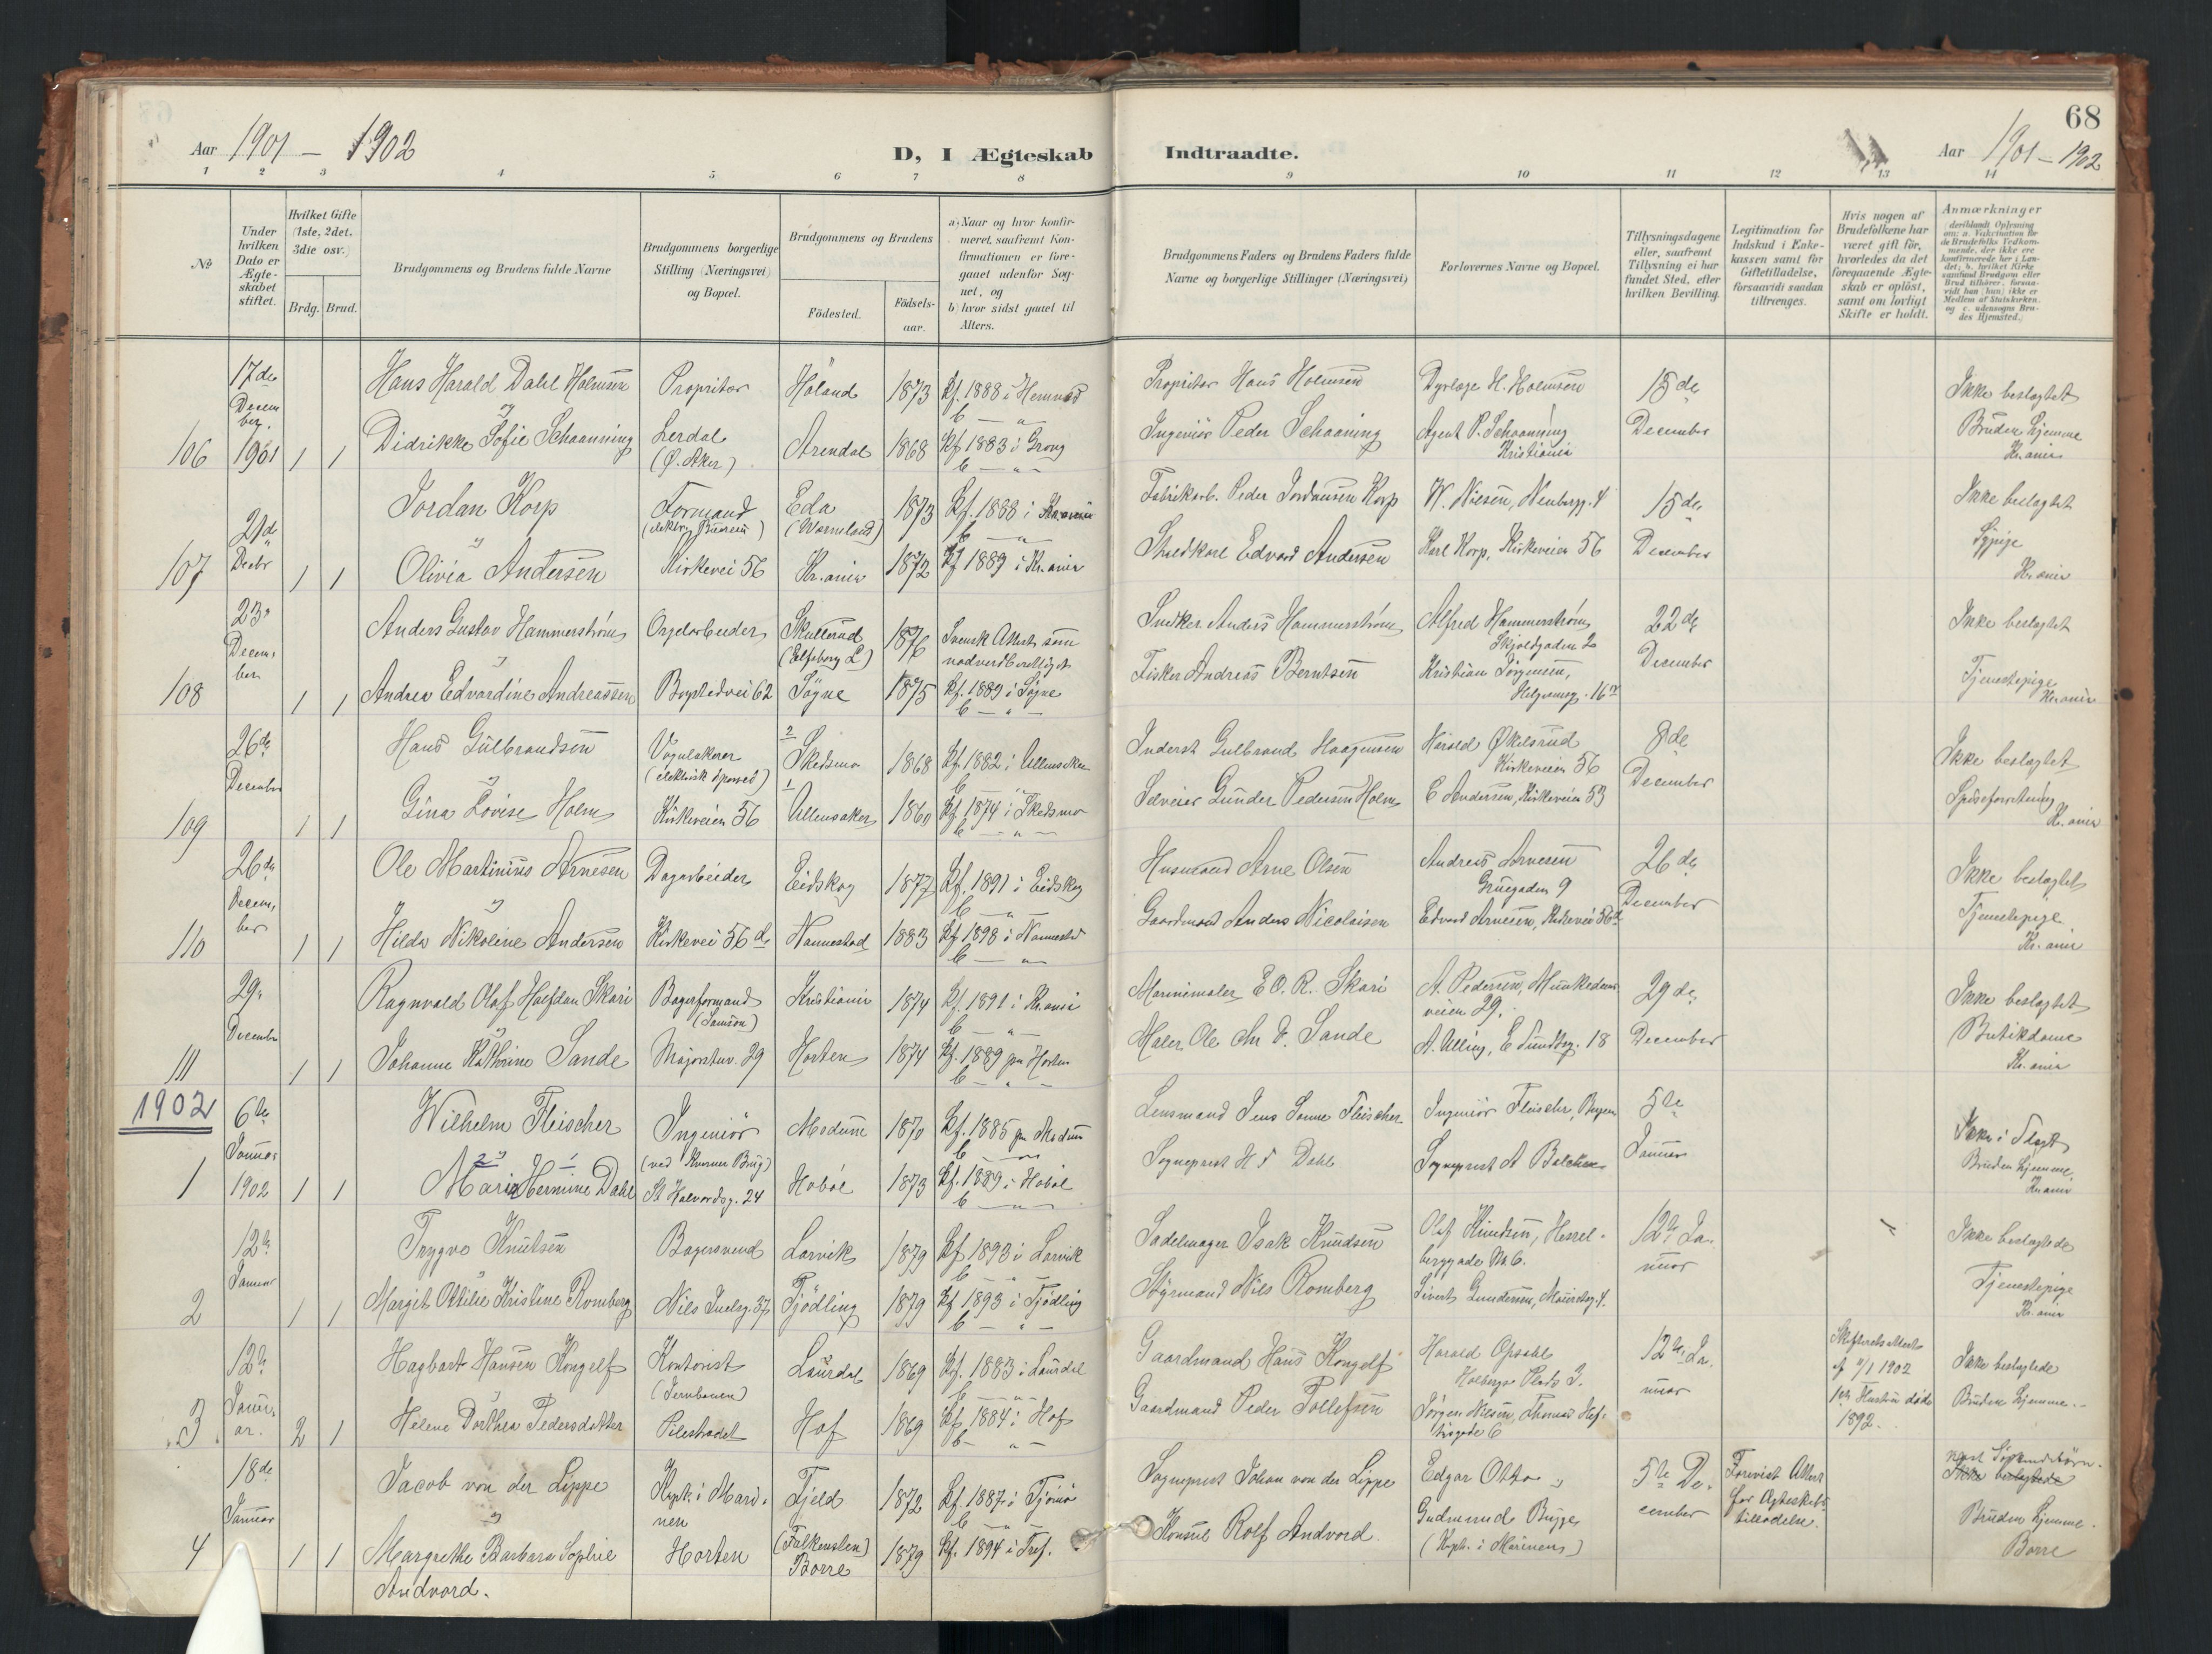 68
Aar 1901 — 1902
D, I Ægteskab Indtraadte.
Aar 1901 — 1902
1 2 3 4 5 6 7 8 9 10 11 12 13 14
No
Under hvilken Dato er Ægteskabet stiftet.
Hvilket Gifte (1ste, 2det, 3die osv.)
Brdg. Brud.
Brudgommens og Brudens fulde Navne
Brudgommens borgerlige Stilling (Næringsvei) og Bopæl.
Brudgommens og Brudens
Födested.
Födsels-aar.
a) Naar og hvor konfir-
meret, saafremt Kon-
firmationen er fore-
gaaet udenfor Sog-
net, og
b) hvor sidst gaaet til
Alters.
Brudgommens Faders og Brudens Faders fulde
Navne og borgerlige Stillinger (Næringsvei)
Forlovernes Navne og Bopæl.
Tillysningsdagene
eller, saafremt
Tillysning ei har
fundet Sted, efter
hvilken Bevilling.
Legitimation for
Indskud i Enke-
kassen samt for
Giftetilladelse,
forsaavidt saadan
tiltrænges.
Hvis nogen af
Brudefolkene har
været gift för,
hvorledes da det
foregaaende Ægte-
skab er oplöst,
samt om lovligt
Skifte er holdt.
Anmærkninger
(deriblandt Oplysning
om: a. Vakcination for
de Brudefolks Vedkom-
mende, der ikke ere
konfirmerede her i Lan-
det; b. hvilket Kirke
samfund Brudgom eller
Brud tilhører, forsaa-
vidt han (hun) ikke er
Medlem af Statskirken.
og c. udensogns Bru-
des Hjemsted.)
106 17de December 1901 1 1
Hans Harald Dahl Holmsen Propritær Höland 1873 Kf. 1888 i Hemnæs
og
Didrikke Sofie Schaanning Lerdal (Ø. Aker) Arendal 1868 Kf. 1883 i Grong
Propritær Hans Holmsen Dyrlæge H. Holmsen 15de December Ikke beslægtet
Ingeniör Peder Schaaning Agent P. Schaanning Kristiania Bruden hjemme Kr.ania
107 21de Decbr 1 1
Jordan Korp Formand Eda (Wærmeland) 1873 Kf. 1888 i Kr.ania
Olivia Andersen Kirkevei 56 Kr.ania 1872 Kf 1889 i Kr.ania
Fabrikarb. Peder Jordansen Korp W. Nilsen, Neubergg. 4 15de December Ikke beslægtet
Edvard Andersen Karl Korp, Kirkeveien 56 Sypige Kr.ania
108 23de December 1 1
Anders Gustav Hammerström Orgelarbeider (Elfsborg L) 1876 Svensk Attest som nadverdberettiget
Andrea Edvardine Andreassen Bogstadvei 62 Sögne 1875 Kf. 1889 i Sögne
Snedker Anders Hammerström Alfred Hammerström, Skjoldgaden 2 22de December Ikke beslægtet
Fisker Andreas Berntsen Kristian Jörgensen, Tjenestepige Kr.ania
109 26de December 1 1
Hans Gulbrandsen Vognlakerer (elektrisk Sporvei) 2 Skedsmo 1868 Kf. 1882 i Ullensaker
Gina Lovise Holm Kirkeveien 56 1 Ullensaker 1860 Kf. 1874 i Skedsmo
Inderst Gulbrand Haagensen Harald Økelsrud Kirkeveien 56 8de December Ikke beslægtet
Selveier Gunder Pedersen Holm E Andersen, Kirkeveien 53 Spiseforretning Kr.ania
110 26de December 1 1
Ole Martinius Arnesen Dagarbeider Eidskog 1877 Kf. 1891 i Eidskog
Hilda Nikoline Andersen Kirkevei 56 d Nannestad 1883 Kf 1898 i Nannestad
Husmand Arne Olsen Andreas Arnesen Gruegaden 9 26de December Ikke beslægtet
Gaardmand Anders Nicolaisen Edvard Arnesen, Kirkevei 56d Tjenestepige Kr.ania
111 29de December 1 1
Ragnvald Olaf Halfdan Skari Bagerformand (Samson) Kristiania 1874 Kf. 1891 i Kr.ania
Johanne Kathrine Sande Majorstuv. 29 Horten 1874 Kf. 1889 paa Horten
Marinemaler E. O. R. Skari A. Pedersen, Munkedamsveien 29. 29de December Ikke beslægtet
Maler Ole Chr. Sande A. Alling, E Sundtsg. 18 Butikdame Kr.ania
1902
1 6te Januar 1902 1 1
Wilhelm Fleischer Ingeniör Modum 1870 Kf. 1885 paa Modum
2 1
Maria Hermine Dahl St Halvardsg. 24 Hobøl 1873 Kf. 1889 i Hobøl
Lensmand Jens Fleischer Ingeniör Fleischer, Bergen 5te Januar Ikke i Slægt
Sogneprest H F Dahl Sogneprest A Balchen Bruden hjemme, Kr.ania
2 12te Januar 1 1
Trygve Knutsen Bagersvend Larvik 1879 Kf. 1893 i Larvik
Margit Ottilie Kristine Romberg Nils Juelsg. 37 Tjödling 1879 Kf 1893 i Tjödling
Sadelmager Isak Knudsen Olaf Knudsen, Hesselberggade No 6. 12te Januar Ikke beslægtede
Styrmand Nils Romberg Sivert Gundersen, Tjenestepige Kr.ania
3 12te Januar. 2 1
Hagbart Hansen Kongelf Kontorist (Jernbanen) Laurdal 1869 Kf. 1883 i Laurdal
Helene Dorthea Pedersdatter Pilestrædet Hof 1869 Kf. 1884 i Hof
Gaardmand Hans Kongelf Harald Opsahl Holbergs Plads 3. 12te Januar Skifterets Attest af 1902 1ste Hustru döde 1892. Ikke beslægtede
Gaardmand Peder Tollefsen Jörgen Nilsen, Thomas Heftyesgade 6 Bruden hjemme.
4 18de Januar 1 1
Jacob von der Lippe Kapt. i Marinen Fjeld 1872 Kf. 1887 i Tjömö
Margrethe Barbara Sophie Andvord. Horten (Falkensten) Borre 1879 Kf. 1894 i Tref.
Sogneprest Johan von der Lippe Edgar Otto og 5te December Forevist Attest for Ægteskabstilladelse.
Konsul Rolf Andvord Gudmund Bugge (Kapt. i Marinen) Søskendebörn. Ikke beslægtede Bruden hjemme. Borre